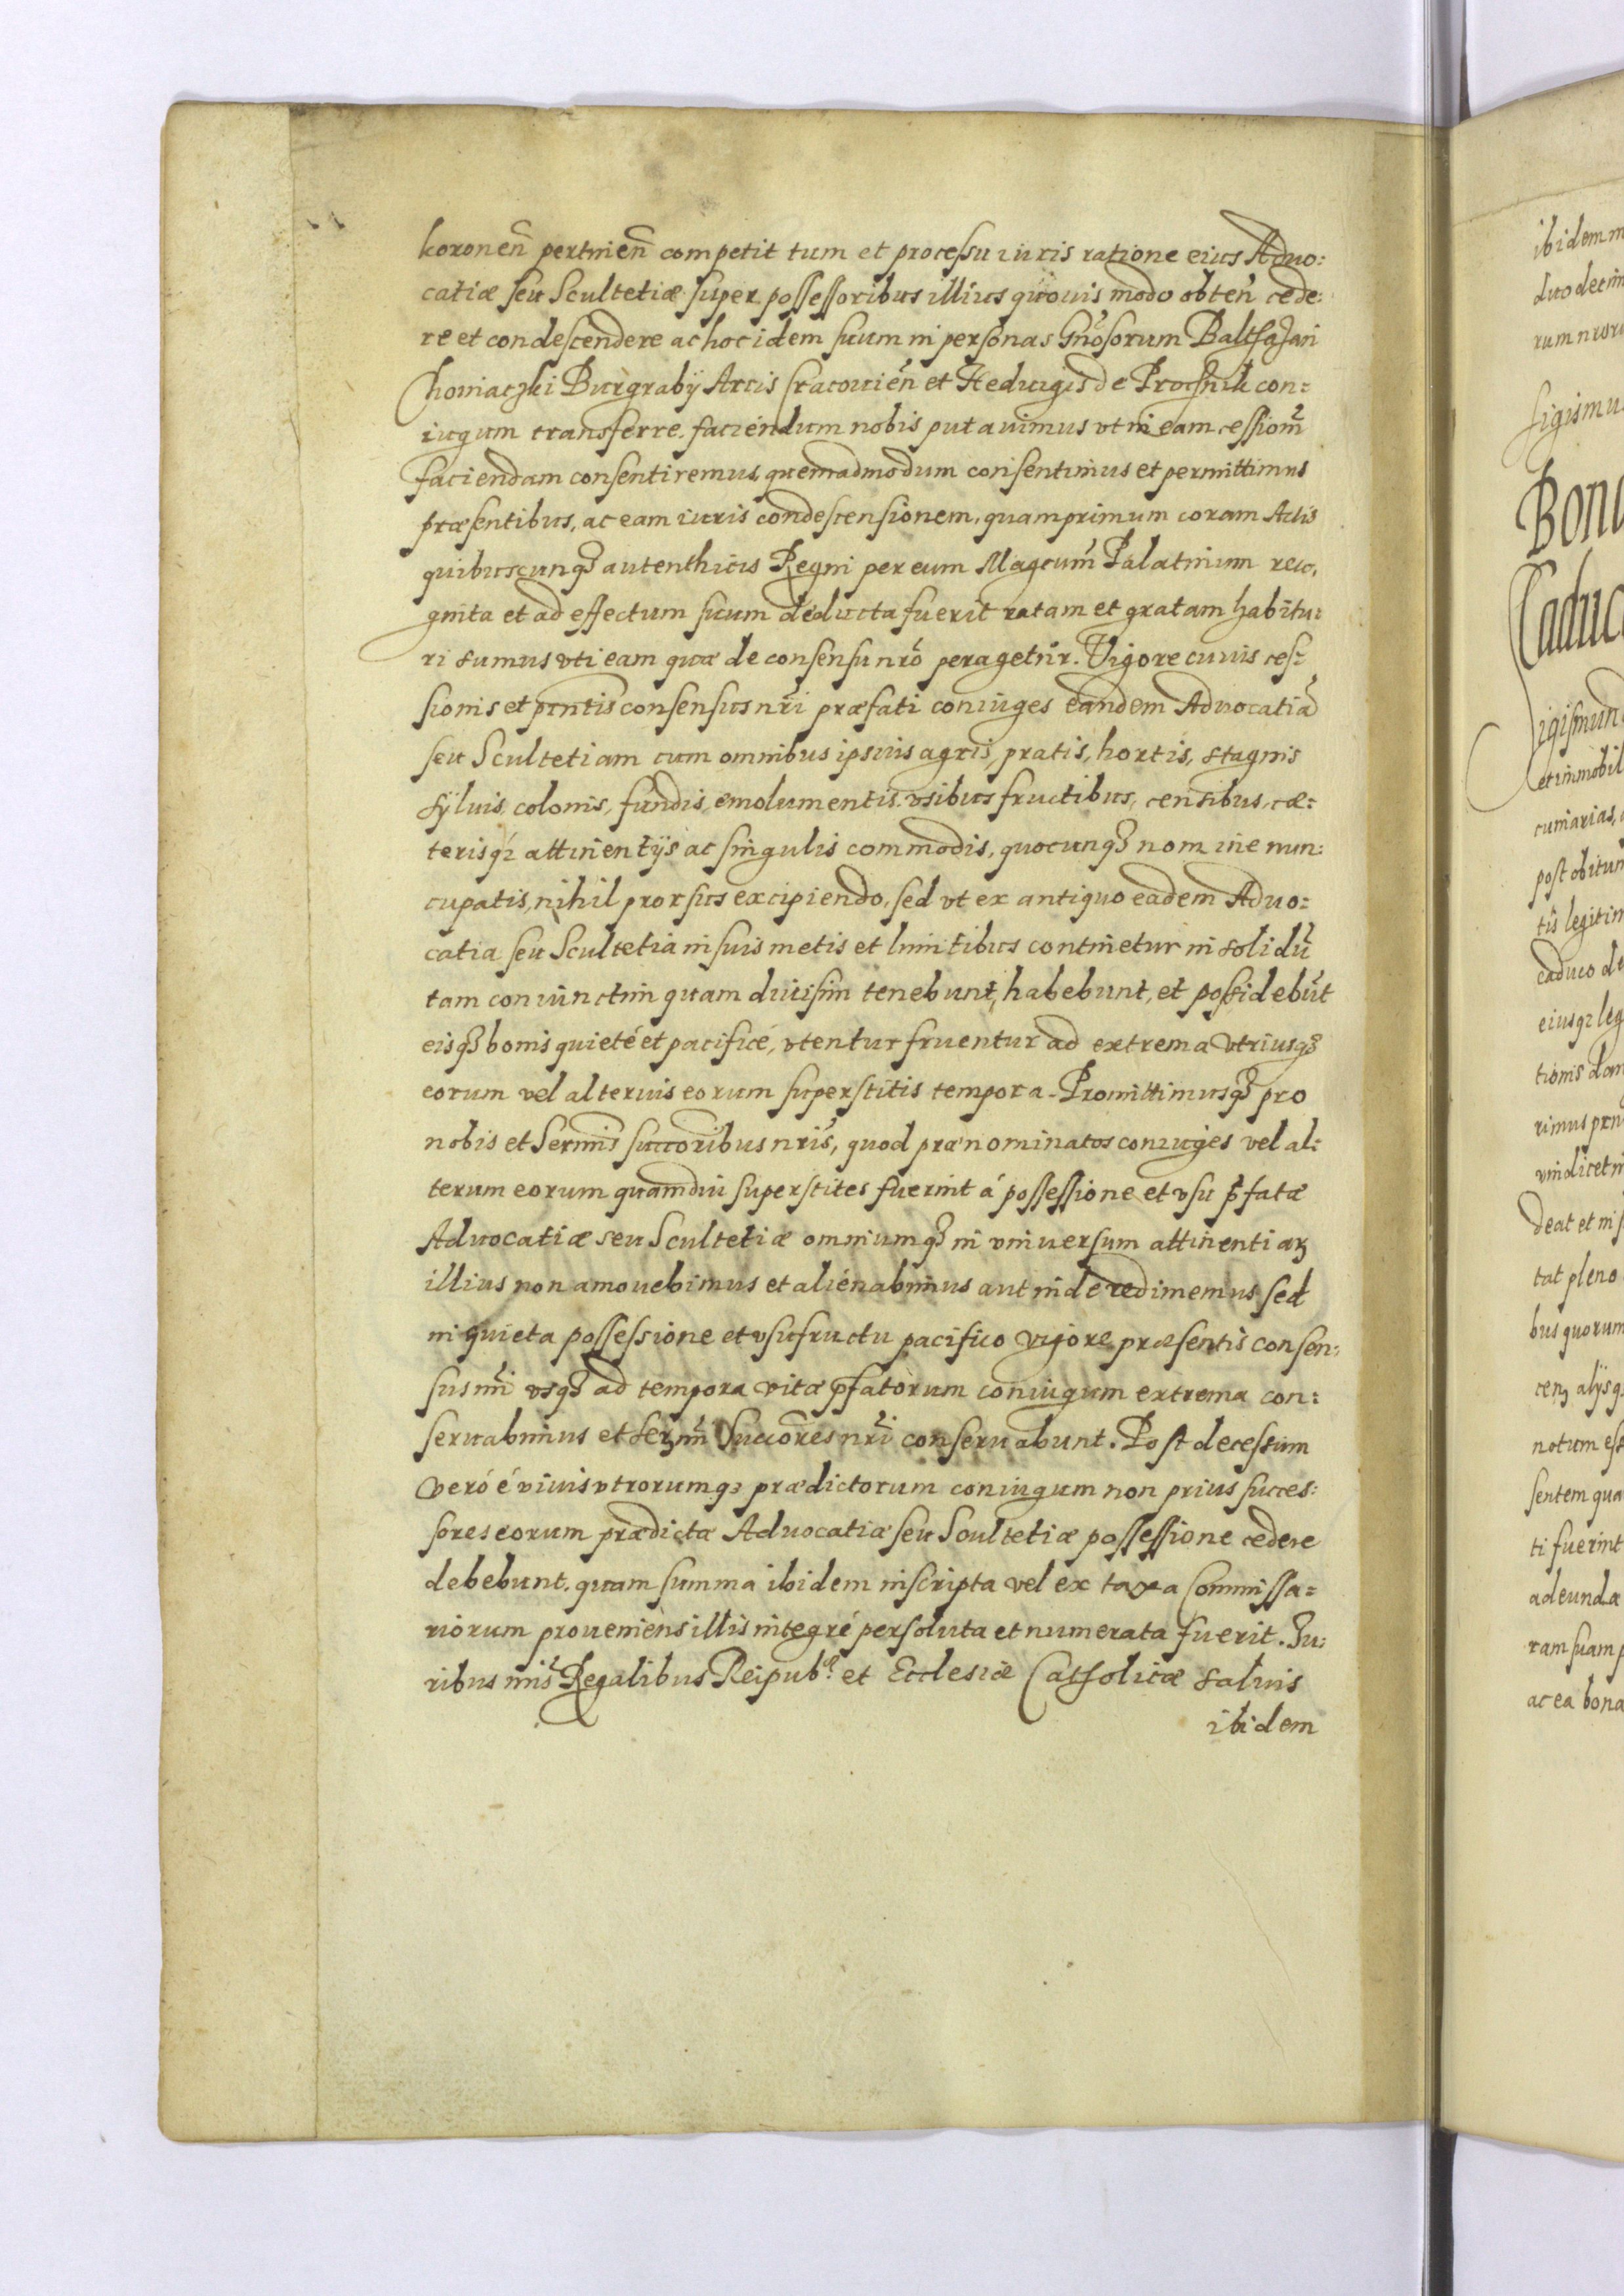 koronen̄ pertinen̄ competit tum et processu iuris ratione eius Aduo:
catiæ seu Scultetiæ super possessoribus illius quouis modo obten̄ cede:
re et condescendere ac hoc idem suum in personas Gn̄osorum Balthasari
Choniaczki Burgrabÿ Arcis Cracouien̄ et Heduigis de Procʃnik con:
iugum transferre. faciendum nobis putauimus vt in eam cessionē̄
faciendam consentiremus, quemadmodum consentimus et permittimus
præsentibus, ac eam iuris condescensionem, quamprimum coram Actis
quibuscunqȝ autenthicis Regni per eum Magcum̄ Palatinum reco,
gnita et ad effectum suum deducta fuerit ratam et gratam habitu:
ri sumus vti eam quæ de consensu nr̄o peragetur. Vigore cuius ces:
sionis et pn̄tis consensus nr̄i præfati coniuges eandem Aduocatiā
seu Scultetiam cum omnibus ipsius agris, pratis, hortis, stagnis
sÿluis, colonis, fundis, emolumentis, vsibus fructibus, censibus, cæ:
terisqȝ attinentÿs ac singulis commodis, quocunqȝ nomine nun:
cupatis, nihil prorsus excipiendo, sed vt ex antiquo eadem Aduo:
catia seu Scultetia in suis metis et limitibus continetur in solidū
tam coniunctim quam diuisim tenebunt, habebunt, et possidebūt
eisqȝ bonis quieté et pacificé, vtentur fruentur ad extrema vtriusqȝ
eorum vel alterius eorum superstitis tempora. Promittimusqȝ pro
nobis et Sermis̄ succoribus̄ nr̄is, quod prænominatos coniuges vel al:
terum eorum quamdiu superstites fuerint á possessione et vsu p̄fatæ
Aduocatiæ seu Scultetiæ omniumqȝ in vniuersum attinentiaꝝ
illius non amouebimus et alienabimus aut inde redimemus sed
in quieta possessione et vsufructu pacifico vigore præsentis consen:
sus nr̄i vsqȝ ad tempora vitæ p̄fatorum coniugum extrema con:
seruabimus et Serm̄i Succores̄ nr̄i conseruabunt. Post decessum
veró é viuis vtrorumqȝ prædictorum coniugum non prius succes:
sores eorum prædictæ Aduocatiæ seu Scultetiæ possessione cedere
debebunt, quam summa ibidem inscripta vel ex taxa Commissa:
riorum proueniens illis integré persoluta et numerata fuerit. Iu:
ribus nr̄is Regalibus Reipubᵉ. et Ecclesiæ Catholicæ saluis
ibidem